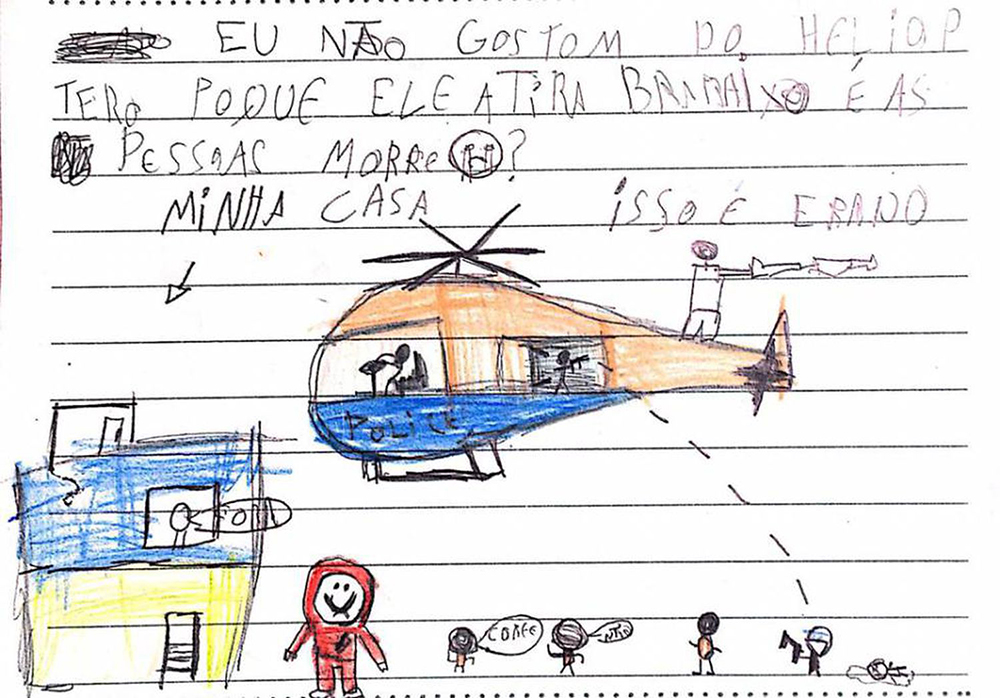 EU NÃO GOSTOM DO HELIOP
TERO POQUE ELE ATIRA BRAMAIXO É AS
PESSOAS MORRE?
MINHA CASA
ISSO É ERADO
POLICE
CORRE
NÃO